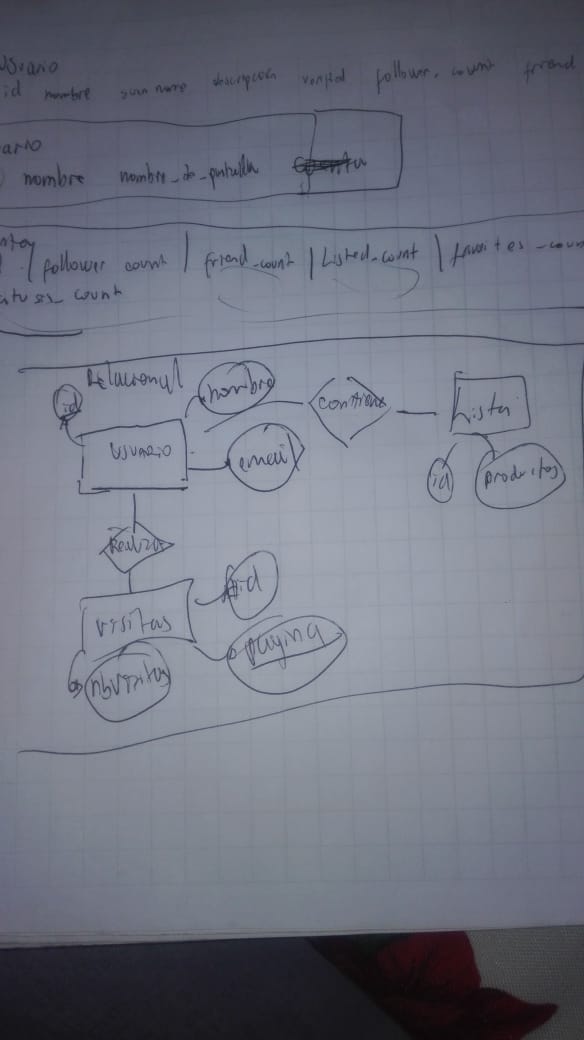 Usuario
id nombre descripcion follower. count friend
ario
nombre nombre_de_pantalla
follower count | friend_count | Listed_count | favorites_coun
atuses_count
Relacional
id nombre contiene Lista
usuario email id productos
Realiza
id
visitas pagina
nbvisitas